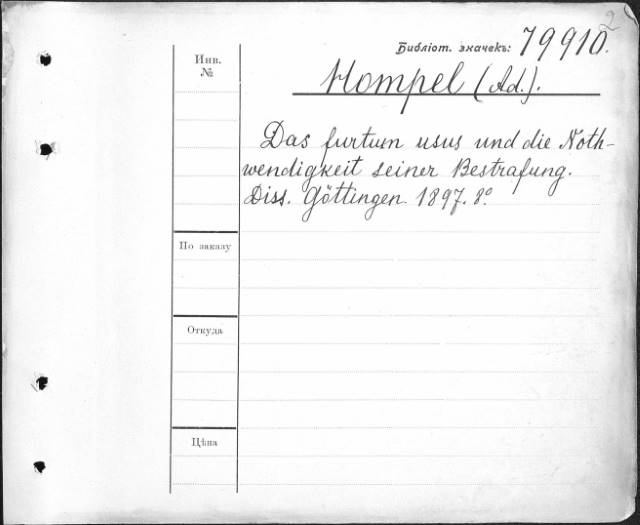 2
Библіот. значекъ: 79910.
Инв.
№
Hompel (Ad.).
Das furtum usus und die Noth-
wendigkeit seiner Bestrafung.
Diss. Göttingen 1897. 8º
По заказу
Откуда
Цѣна